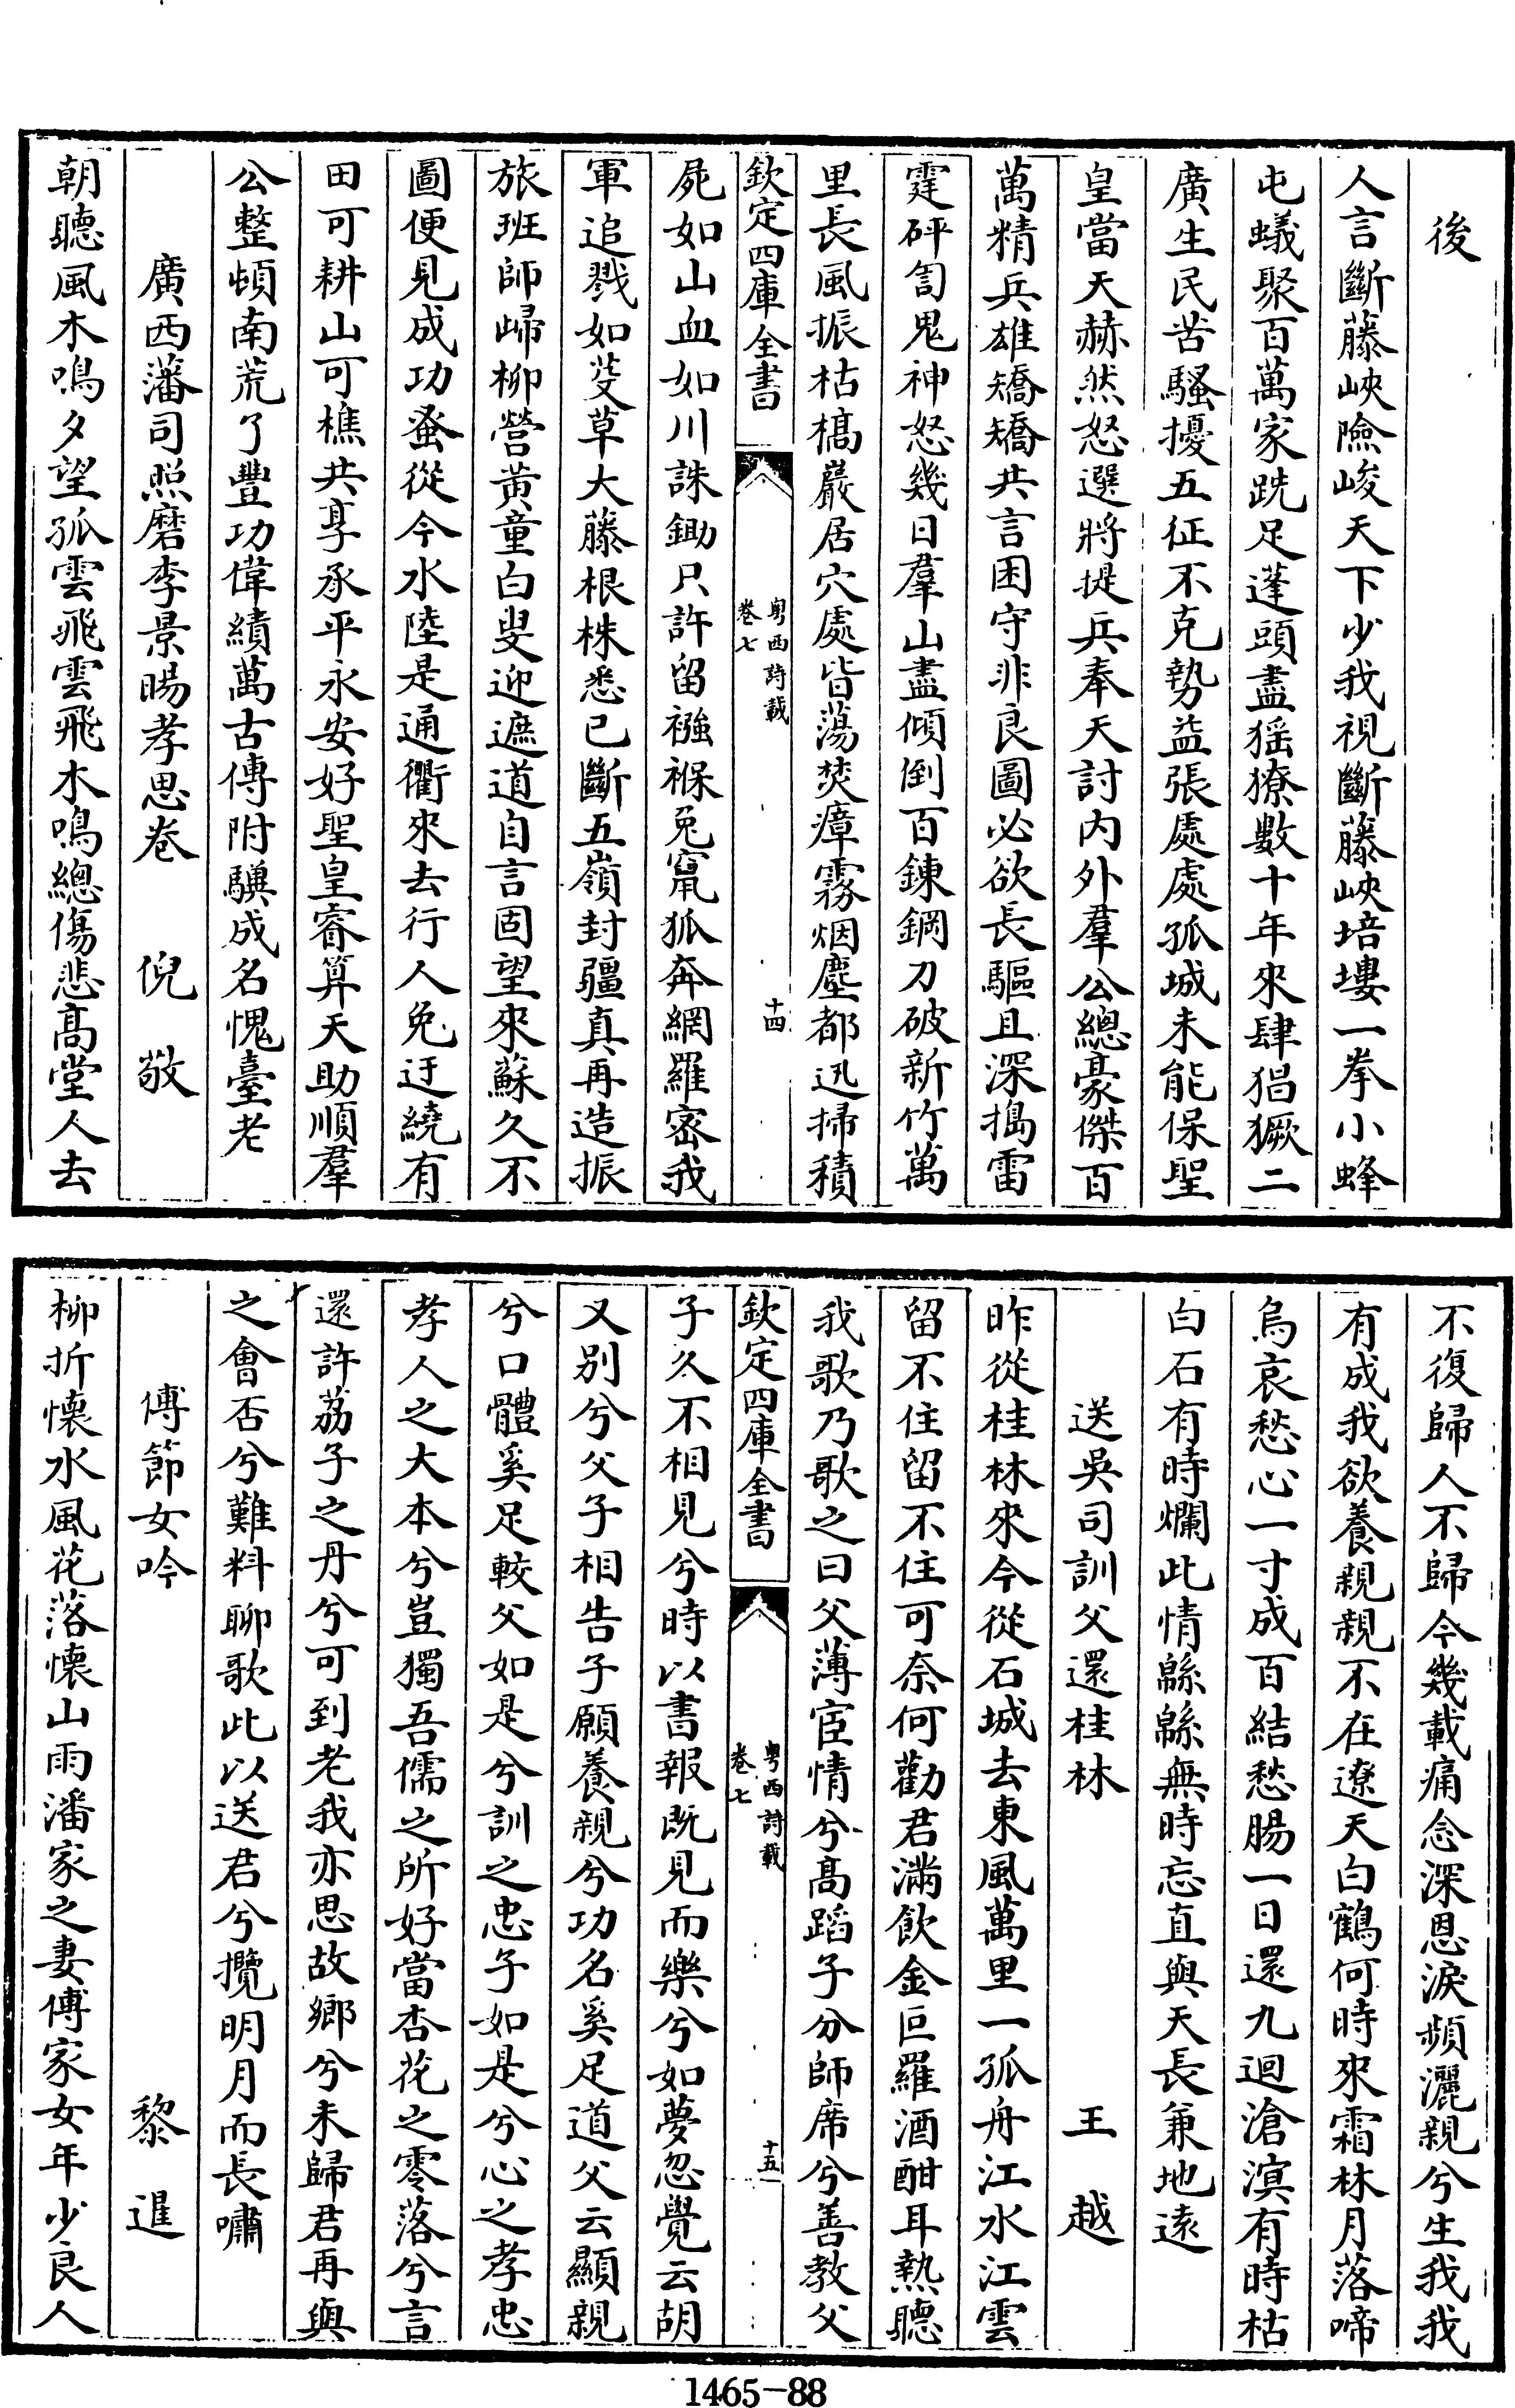 後
人言斷藤峽險峻天下少我視斷藤峽培塿一拳小蜂
屯蟻聚百萬家跣足蓬頭盡猺獠數十年來肆猖獗二
廣生民苦騷擾五征不克勢益張處處孤城未能保聖
皇當天赫然怒選將提兵奉天討内外羣公總豪傑百
萬精兵雄矯矯共言困守非良圖必欲長驅且深搗雷
霆砰訇鬼神怒幾日羣山盡傾倒百鍊鋼刀破新竹萬
里長風振枯槁巖居穴處皆蕩焚瘴霧烟塵都迅掃積
欽定四庫全書
粤西詩載
卷七
十四
屍如山血如川誅鋤只許留襁褓兎竄狐奔網羅密我
軍追戮如芟草大藤根株悉已斷五嶺封疆真再造振
旅班師歸柳營黄童白叟迎遮道自言固望來蘇久不
圖便見成功蚤從今水陸是通衢來去行人免迂繞有
田可耕山可樵共享承平永安好聖皇睿算天助順羣
公整頓南荒了豐功偉績萬古傳附驥成名愧臺老
廣西藩司照磨李景暘孝思卷 倪敬
朝聽風木鳴夕望孤雲飛雲飛木鳴總傷悲髙堂人去
不復歸人不歸今幾載痛念深恩淚頻灑親兮生我我
有成我欲養親親不在遼天白鶴何時來霜林月落啼
烏哀愁心一寸成百結愁腸一日還九迴滄溟有時枯
白石有時爛此情緜緜無時忘直與天長兼地遠
送吳司訓父還桂林 王越
昨從桂林來今從石城去東風萬里一孤舟江水江雲
留不住留不住可奈何勸君滿飲金叵羅酒酣耳熱聽
我歌乃歌之曰父薄宦情兮髙蹈子分師席兮善教父
欽定四庫全書
粤西詩載
卷七
十五
子久不相見兮時以書報既見而樂兮如夢忽覺云胡
又别兮父子相告子願養親兮功名奚足道父云顯親
兮口體奚足較父如是兮訓之忠子如是兮心之孝忠
孝人之大本兮豈獨吾儒之所好當杏花之零落兮言
還許荔子之丹兮可到老我亦思故鄉兮未歸君再與
之會否兮難料聊歌此以送君兮攬明月而長嘯
傅節女吟 黎暹
柳折懐水風花落懐山雨潘家之妻傅家女年少良人
1465-88